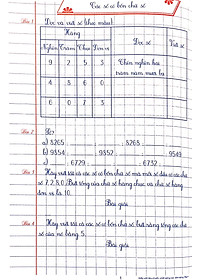 Các số có bốn chữ số
Bài 1
Đọc và viết số (theo mẫu)
Hàng
Đọc số
Viết số
Nghìn Trăm Chục Đơn vị
9 2 5 3
Chín nghìn hai trăm năm mươi ba
4 3 6 0
6 0 7 3
Bài 2
Số?
a) 8265 ; ; ; 8268 ;
b) 9354 ; ; 9352 ; ; 9549
c) ; 6729 ; ; 6732 ;
Bài 3
Hãy viết tất cả các số có bốn chữ số mà mỗi số đều có các chữ
số 7, 2, 8, 0. Biết rằng của chữ số hàng chục và chữ số hàng
đơn vị là 10.
Bài giải
Bài 4
Hãy viết tất cả các số có bốn chữ số, biết rằng tổng các chữ
số của nó bằng 5.
Bài giải